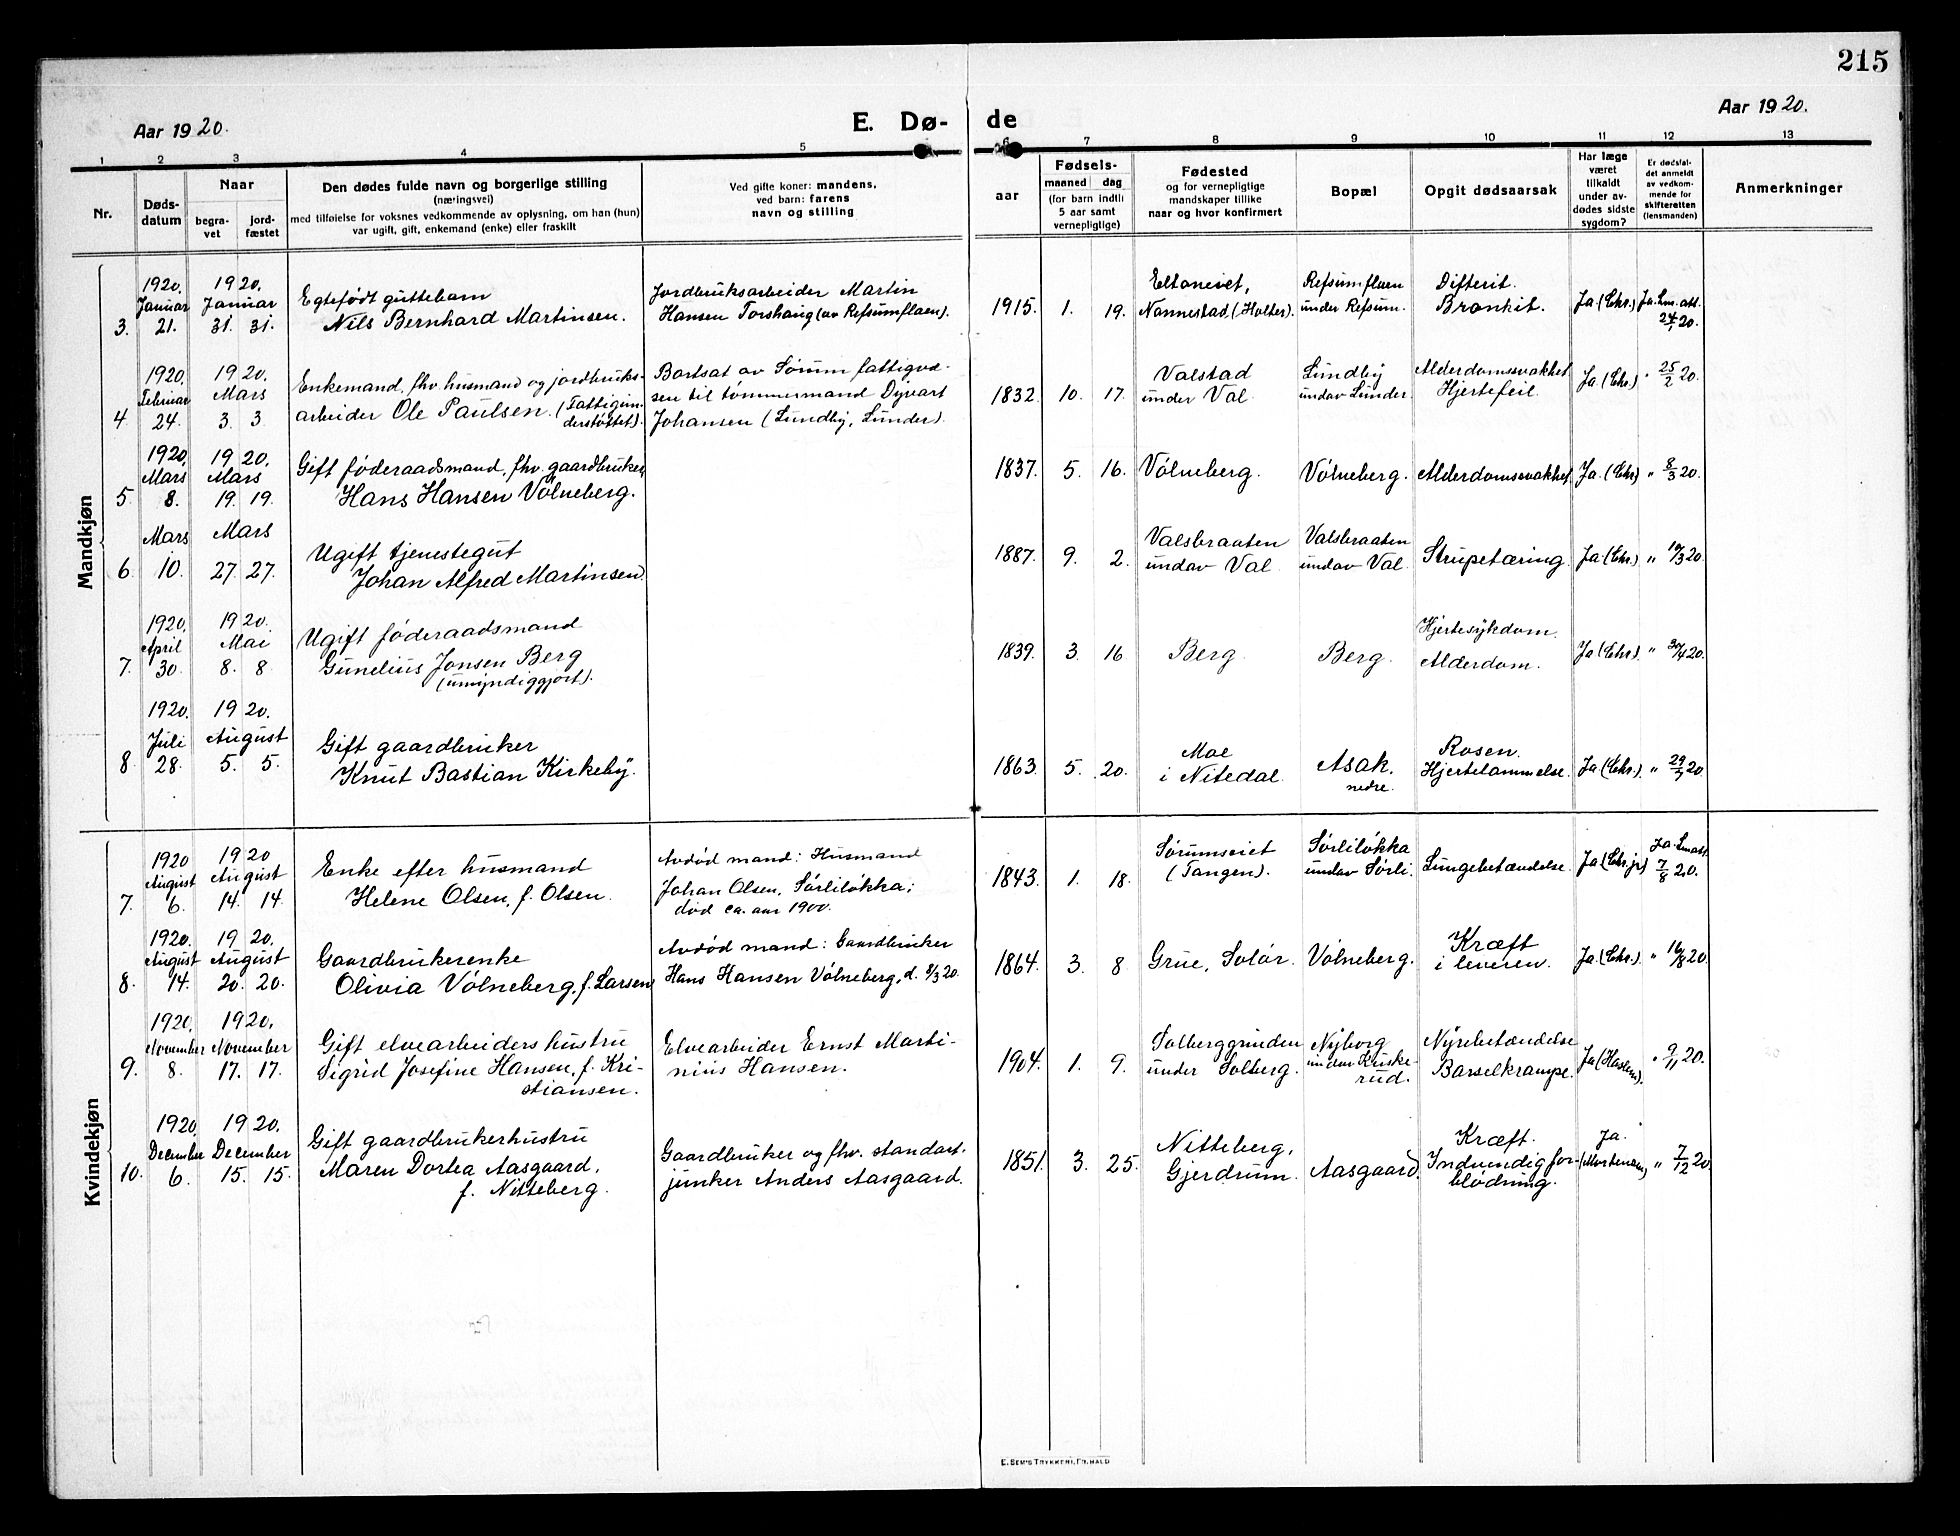 215
Aar 1920.
E. Dø-
de
Aar 1920.
1 2 3 4 5 6 7 8 9 10 11 12 13
Nr.
Døds-
datum
Naar
begra-
vet
jord-
fæstet
Den dødes fulde navn og borgerlige stilling
(næringsvei)
med tilføielse for voksnes vedkommende av oplysning, om han (hun)
var ugift, gift, enkemand (enke) eller fraskilt
Ved gifte koner: mandens,
ved barn: farens
navn og stilling
aar
Fødsels-
maaned dag
(for barn indtil
5 aar samt
vernepligtige)
Fødested
og for vernepligtige
mandskaper tillike
naar og hvor konfirmert
Bopæl
Opgit dødsaarsak
Har læge
været
tilkaldt
under av-
dødes sidste
sygdom?
Er dødsfal-
det anmeldt
av vedkom-
mende for
skifteretten
(lensmanden)
Anmerkninger
Mandkjøn
3.
1920.
Januar
21.
1920.
Januar
31. 31.
Egtefødt guttebarn
Nils Bernhard Martinsen.
Jordbruksarbeider Martin
Hansen Torshaug (av Refsumflaen).
1915. 1. 19.
Eltoneiet,
Nannestad, (Holter).
Refsumflaen
under Refsum.
Difterit.
Bronkit.
Ja (Chr.)
Ja. Lm. att.
24/1 20.
4.
1920.
Februar
24.
1920.
Mars
3. 3.
Enkemand, fhv. husmand og jordbruks-
arbeider Ole Paulsen. (Fattigun-
derstøttet).
Bortsat av Sørum fattigvæ-
sen til tømmermand Dyvart
Johansen (Lundby, Lunder).
1832. 10. 17.
Valstad
under Val.
Lundby
undav Lunder.
Alderdomssvakhet
Hjertefeil.
Ja (Chr.)
" 25/2 20.
5.
1920.
Mars
8.
1920.
Mars
19. 19.
Gift føderaadsmand, fhv. gaardbruker
Hans Hansen Vølneberg.
1837. 5. 16.
Vølneberg.
Vølneberg.
Alderdomssvakhet
Ja. (Chr)
" 8/3 20.
6.
Mars
10.
Mars
27. 27.
Ugift tjenestegut
Johan Alfred Martinsen.
1887. 9. 2.
Valsbraaten
undav Val.
Valsbraaten
undav Val.
Strupetæring.
Ja (Chr.)
" 10/3 20.
7.
1920.
April
30.
1920.
Mai
8. 8.
Ugift føderaadsmand
Gunelius Jonsen Berg
(umyndiggjort).
1839. 3. 16
Berg.
Berg.
Hjertesykdom.
Alderdom.
Ja (Chr.)
" 30/4 20.
8.
1920.
Juli
28.
1920.
August
5. 5.
Gift gaardbruker
Knut Bastian Kirkeby.
1863. 5. 20.
Moe
i Nitedal.
Asak.
nedre.
Rosen.
Hjertelammelse.
Ja (Chr.)
" 29/7 20.
Kvindekjøn
7.
1920
August
6.
1920
August
14. 14.
Enke efter husmand
Helene Olsen, f. Olsen.
Avdød mand: Husmand
Johan Olsen, Sørliløkka;
død ca. aar 1900.
1843. 1. 18.
Sørumseiet
(Tangen).
Sørliløkka
undav Sørli.
Lungebetændelse.
Ja (Chr. jr)
Ja. Lm att.
7/8 20.
8.
1920.
August
14.
1920.
August
20. 20.
Gaardbrukerenke
Olivia Vølneberg, f. Larsen
Avdød mand: Gaardbruker
Hans Hansen Vølneberg, d. 8/3 20.
1864. 3. 8
Grue, Solør.
Vølneberg.
Kræft
i leveren.
Ja (Chr.)
" 16/8 20.
9.
1920.
November
8.
1920.
November
17. 17.
Gift elvearbeiders hustru
Sigrid Josefine Hansen, f. Kri-
stiansen.
Elvearbeider Ernst Marti-
nius Hansen.
1904. 1. 9.
Solberggrinden
under Solberg.
Nyborg
undav Kuske-
rud.
Nyrebetændelse
Barselkrampe.
Ja (Haslem).
" 9/11 20.
10.
1920.
December
6.
1920.
December
15. 15.
Gift gaardbrukerhustru
Maren Dortea Aasgaard,
f. Nitteberg.
Gaardbruker og fhv. standart-
junker Anders Aasgaard.
1851. 3. 25.
Nitteberg,
Gjerdrum.
Aasgaard.
Kræft.
Indvendig for-
blødning.
Ja.
(Mortensen)
" 7/12 20.
E. SEM'S TRYKKERI, FR.HALD